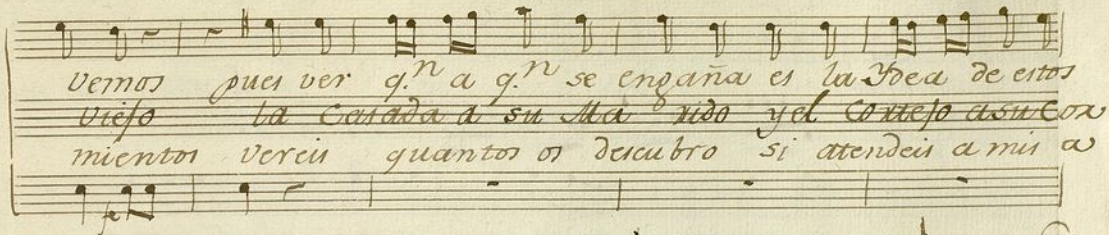 vemos pues ver q.n a q.n se engaña es la Ydea de estos
viejo la Casada a su Marido y el Cortejo a su Cor
mientos vereis quantos os descubro si atendeis a mis a